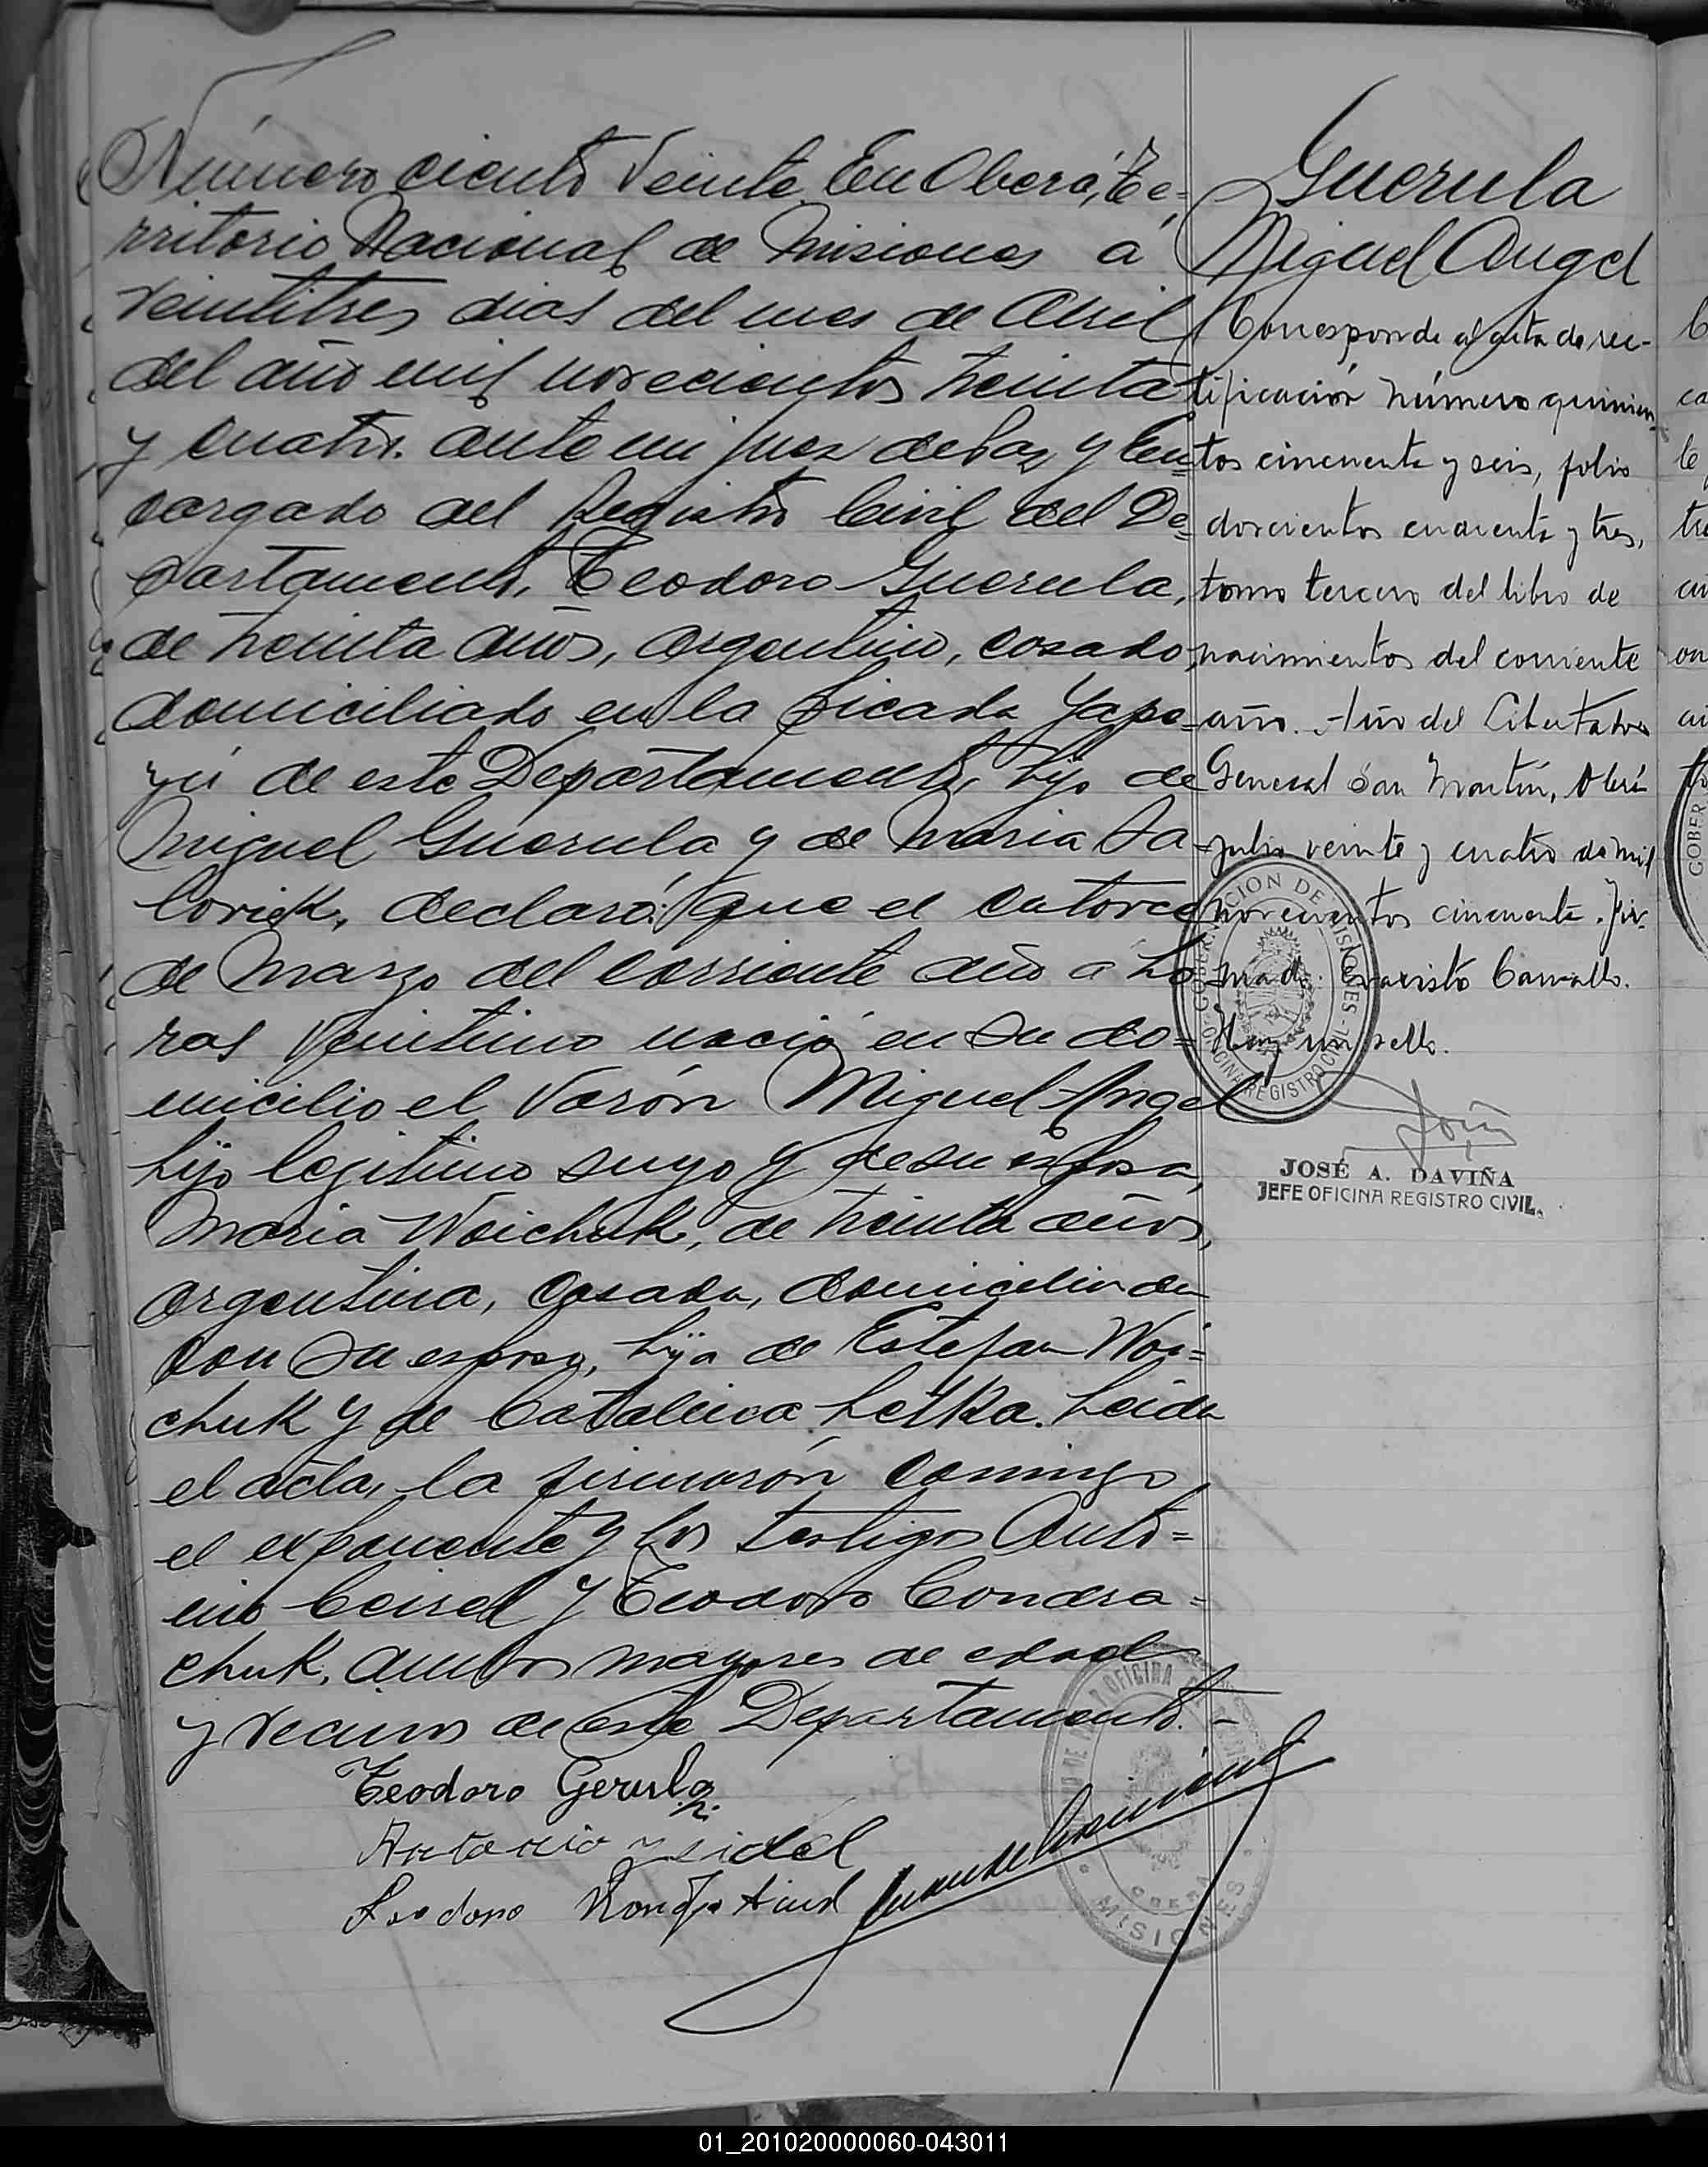 Número ciento veinte En Oberá, Te=
rritorio Nacional de Misiones a
veintitres dias del mes de Abril
del año mil novecientos treinta
y cuatro. ante mi Juez de Paz y En=
cargado del Registro Civil del De=
partamento, Teodoro Guerula,
de treinta años, argentino, casado,
domiciliado en la picada Yape=
yú de este Departamento, hijo de
Miguel Guerula y de Maria Sa-
lovick, declaró: que el catorce
de Marzo del corriente año a ho
ras veintiuno nació en su do=
micilio el varón Miguel Angel
hijo legitimo suyo y de su esposa,
Maria Woichuk, de treinta años,
argentina, casada, domiciliada
con su esposo, hija de Estefan Woi=
chuk y de Catalina Letka. Leida
el acta, la firmarón conmigo
el exponente y los testigos Anto=
nio Ceidel y Teodoro Condra=
chuk, ambos mayores de edad
y vecinos de este Departamento. -
Teodoro Gerula
Antonio
Guerula
Miguel Angel
Corresponde al acta de rec-
tificación número quinien
tos cincuenta y seis, folio
doscientos cuarenta y tres,
tomo tercero del libro de
nacimientos del corriente
año. Año del Libertador
General San Martín, Oberá
julio veinte y cuatro de mil
novecientos cincuenta. Fir-
mado: Evaristo Carvallo.
Hay un sello.
GOBERNACION DE MISIONES
OFICINA REGISTRO CIVIL
JOSÉ A. DAVIÑA
JEFE OFICINA REGISTRO CIVIL.
OBERA
MISIONES
01_201020000060-043011